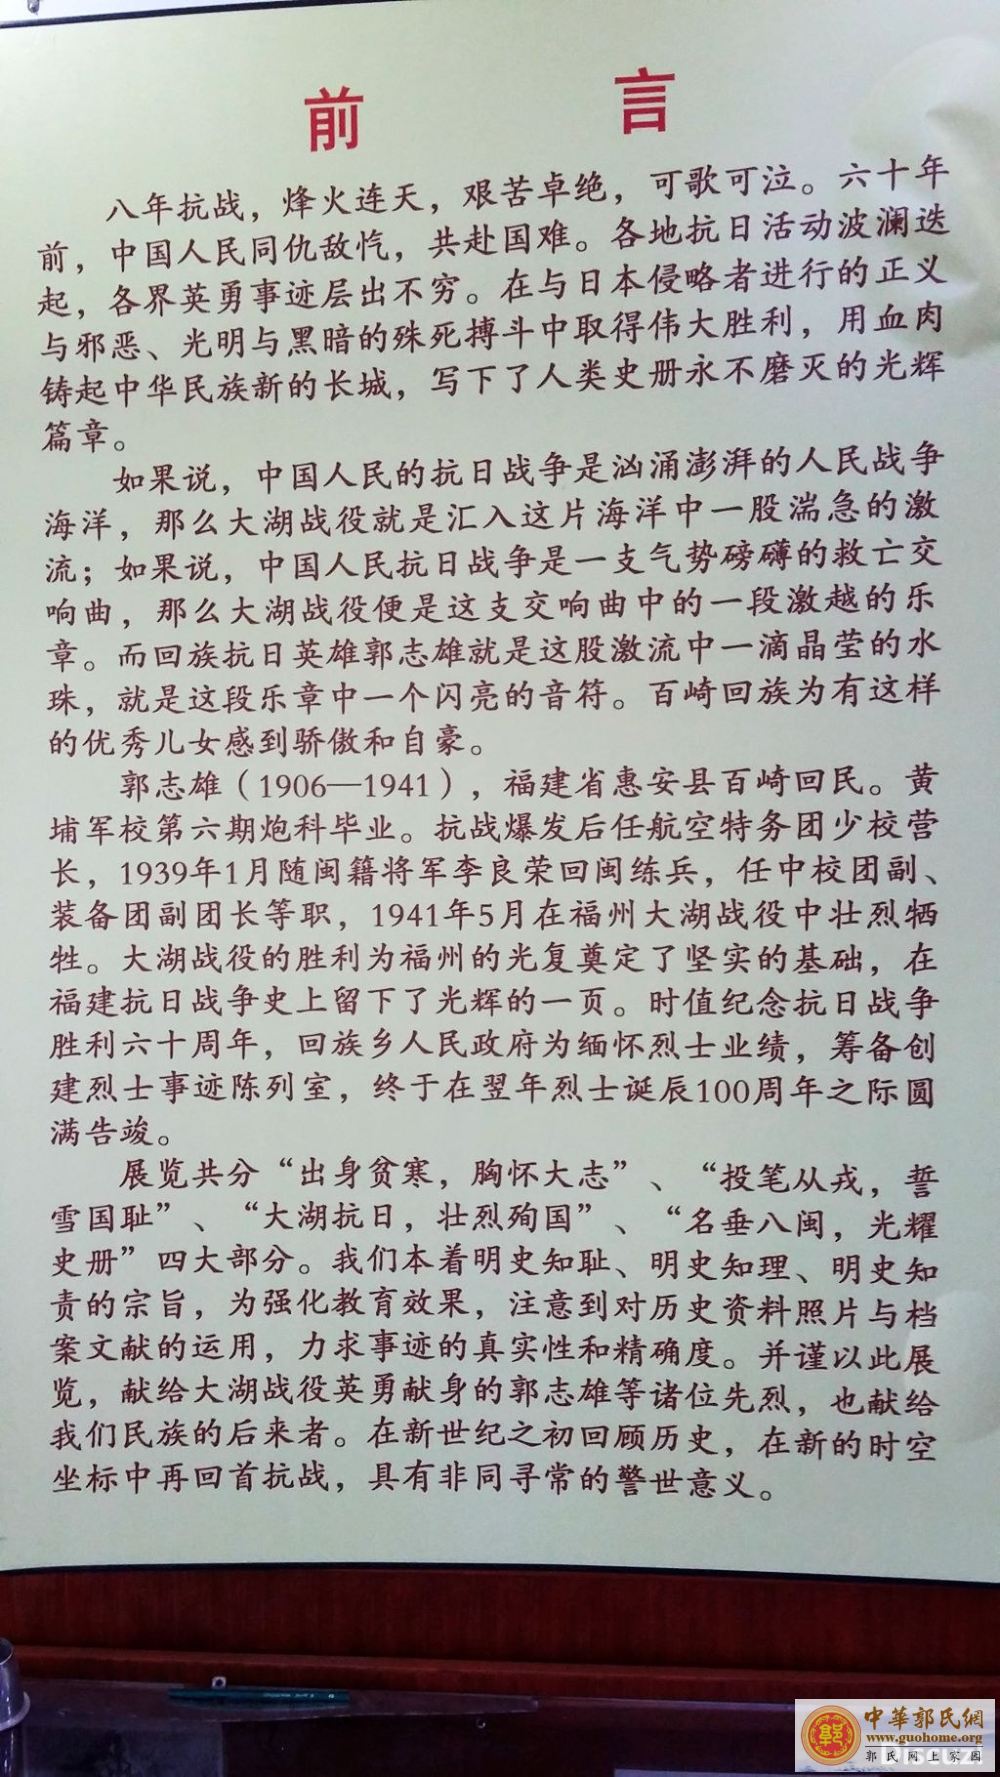 前 言
八年抗战，烽火连天，艰苦卓绝，可歌可泣。六十年
前，中国人民同仇敌忾，共赴国难。各地抗日活动波澜迭
起，各界英勇事迹层出不穷。在与日本侵略者进行的正义
与邪恶、光明与黑暗的殊死搏斗中取得伟大胜利，用血肉
铸起中华民族新的长城，写下了人类史册永不磨灭的光辉
篇章。
如果说，中国人民的抗日战争是汹涌澎湃的人民战争
海洋，那么大湖战役就是汇入这片海洋中一股湍急的激
流；如果说，中国人民抗日战争是一支气势磅礴的救亡交
响曲，那么大湖战役便是这支交响曲中的一段激越的乐
章。而回族抗日英雄郭志雄就是这股激流中一滴晶莹的水
珠，就是这段乐章中一个闪亮的音符。百崎回族为有这样
的优秀儿女感到骄傲和自豪。
郭志雄（1906—1941），福建省惠安县百崎回民。黄
埔军校第六期炮科毕业。抗战爆发后任航空特务团少校营
长，1939年1月随闽籍将军李良荣回闽练兵，任中校团副、
装备团副团长等职，1941年5月在福州大湖战役中壮烈牺
牲。大湖战役的胜利为福州的光复奠定了坚实的基础，在
福建抗日战争史上留下了光辉的一页。时值纪念抗日战争
胜利六十周年，回族乡人民政府为缅怀烈士业绩，筹备创
建烈士事迹陈列室，终于在翌年烈士诞辰100周年之际圆
满告竣。
展览共分“出身贫寒，胸怀大志”、“投笔从戎，誓
雪国耻”、“大湖抗日，壮烈殉国”、“名垂八闽，光耀
史册”四大部分。我们本着明史知耻、明史知理、明史知
责的宗旨，为强化教育效果，注意到对历史资料照片与档
案文献的运用，力求事迹的真实性和精确度。并谨以此展
览，献给大湖战役英勇献身的郭志雄等诸位先烈，也献给
我们民族的后来者。在新世纪之初回顾历史，在新的时空
坐标中再回首抗战，具有非同寻常的警世意义。
中華郭氏網
www.guohome.org
郭氏网上家园
Discuz!